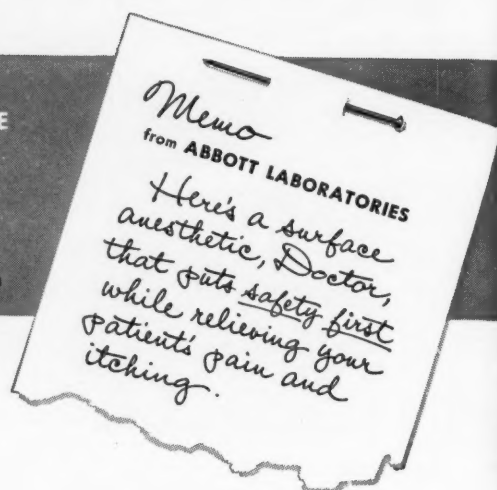 E
Memo
from ABBOTT LABORATORIES
Here's a surface
anesthetic, Doctor,
that puts safety first
while relieving your
patient's pain and
itching.